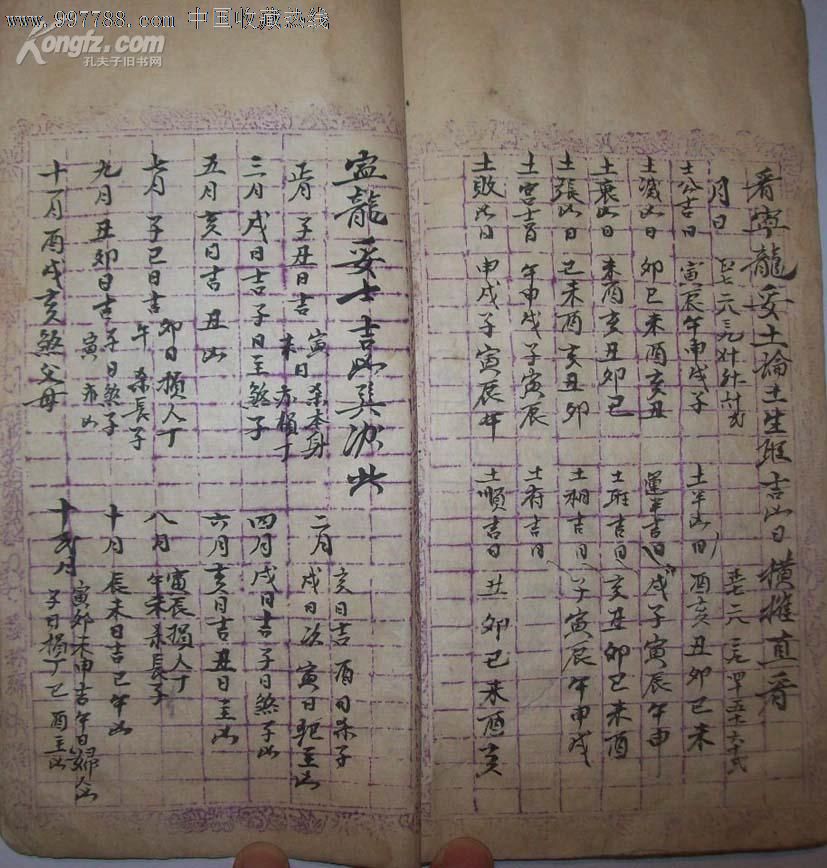 www.997788.com 中国收藏热线
Kongfz.com
孔夫子旧书网
看宁龍妥土論土生旺吉凶日 橫推直看
月日
土公吉日 寅辰午申戌子
土平凶日 酉亥丑卯巳未
土滅凶日 卯巳未酉亥丑
吉日 戌子寅辰午申
土衰凶日 未酉亥丑卯巳
土旺吉日 亥丑卯巳未酉
土張凶日 巳未酉亥丑卯
土相吉日 子寅辰午申戌
土宫吉日 午申戌子寅辰
土府吉日
土败凶日 申戌子寅辰午
土順吉日 丑卯巳未酉亥
龍妥土吉凶具於此
正月 子丑日吉 寅日杀本身 未日亦損丁
二月 亥日吉 酉日杀子 戌日次 寅日犯至凶
三月 戌日吉子日至煞子
四月 戌日吉子日煞子凶
五月 亥日吉 丑凶
六月 亥日吉丑日至凶
七月 子巳日吉 卯日損人丁 午杀長子
八月 寅辰損人丁 午未杀長子
九月 丑卯日吉 子日煞子 寅亦凶
十月 辰未日吉巳午凶
十一月 酉戌亥煞父母
十二月 寅卯未申吉午日婦人凶 子日損丁巳酉至凶